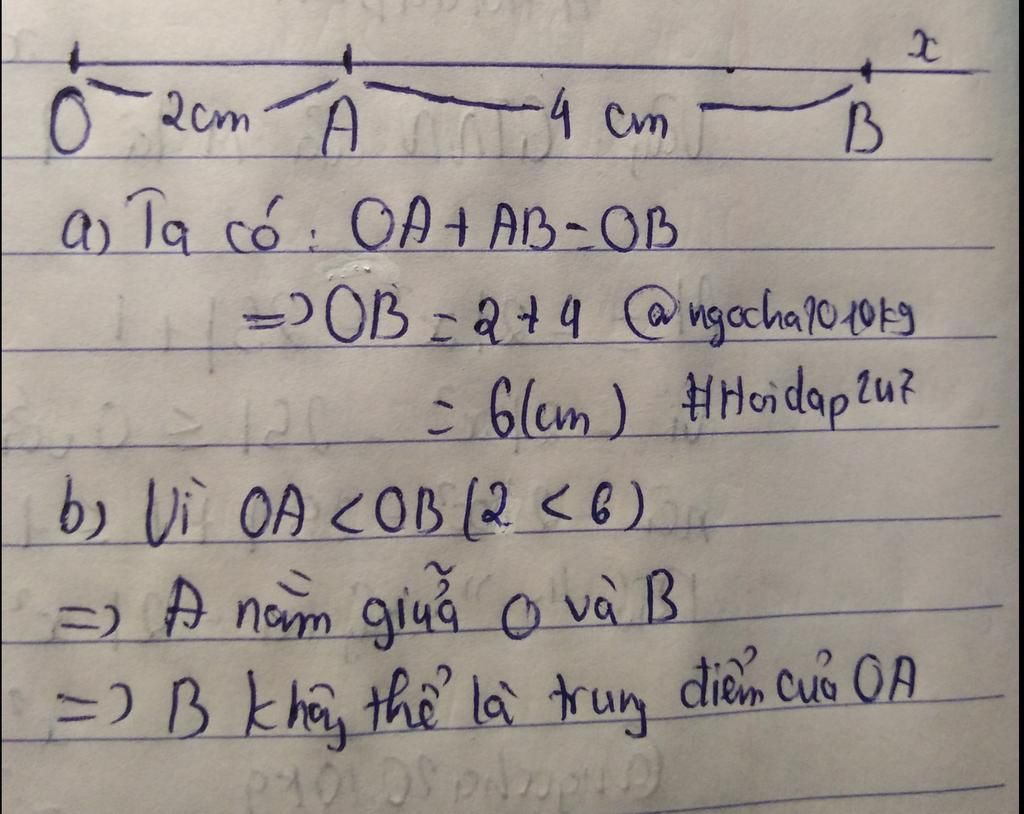 x
O 2cm A 4 cm B
a) Ta có: OA + AB = OB
=> OB = 2 + 4 @ngocha2010kg
= 6(cm) #Hoidap247
b) Vì OA < OB (2 < 6)
=> A nằm giữa O và B
=> B không thể là trung điểm của OA